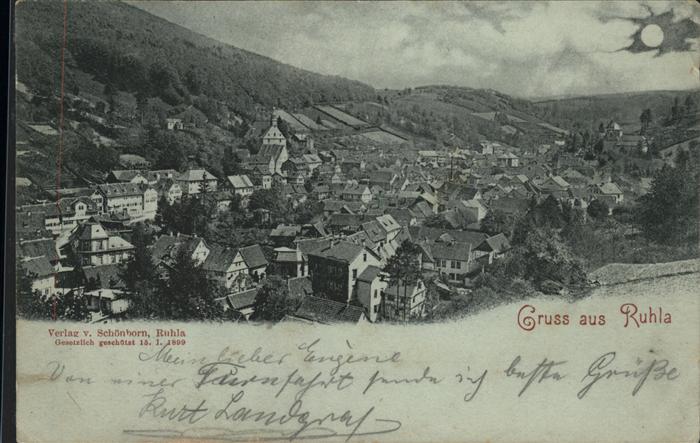 Gruss aus Ruhla
Verlag v. Schönborn, Ruhla
Gesetzlich geschützt 15. 1. 1899
Mein lieber Eugène
Von einer Turnfahrt sende ich beste Grüße
Kurt Landgraf